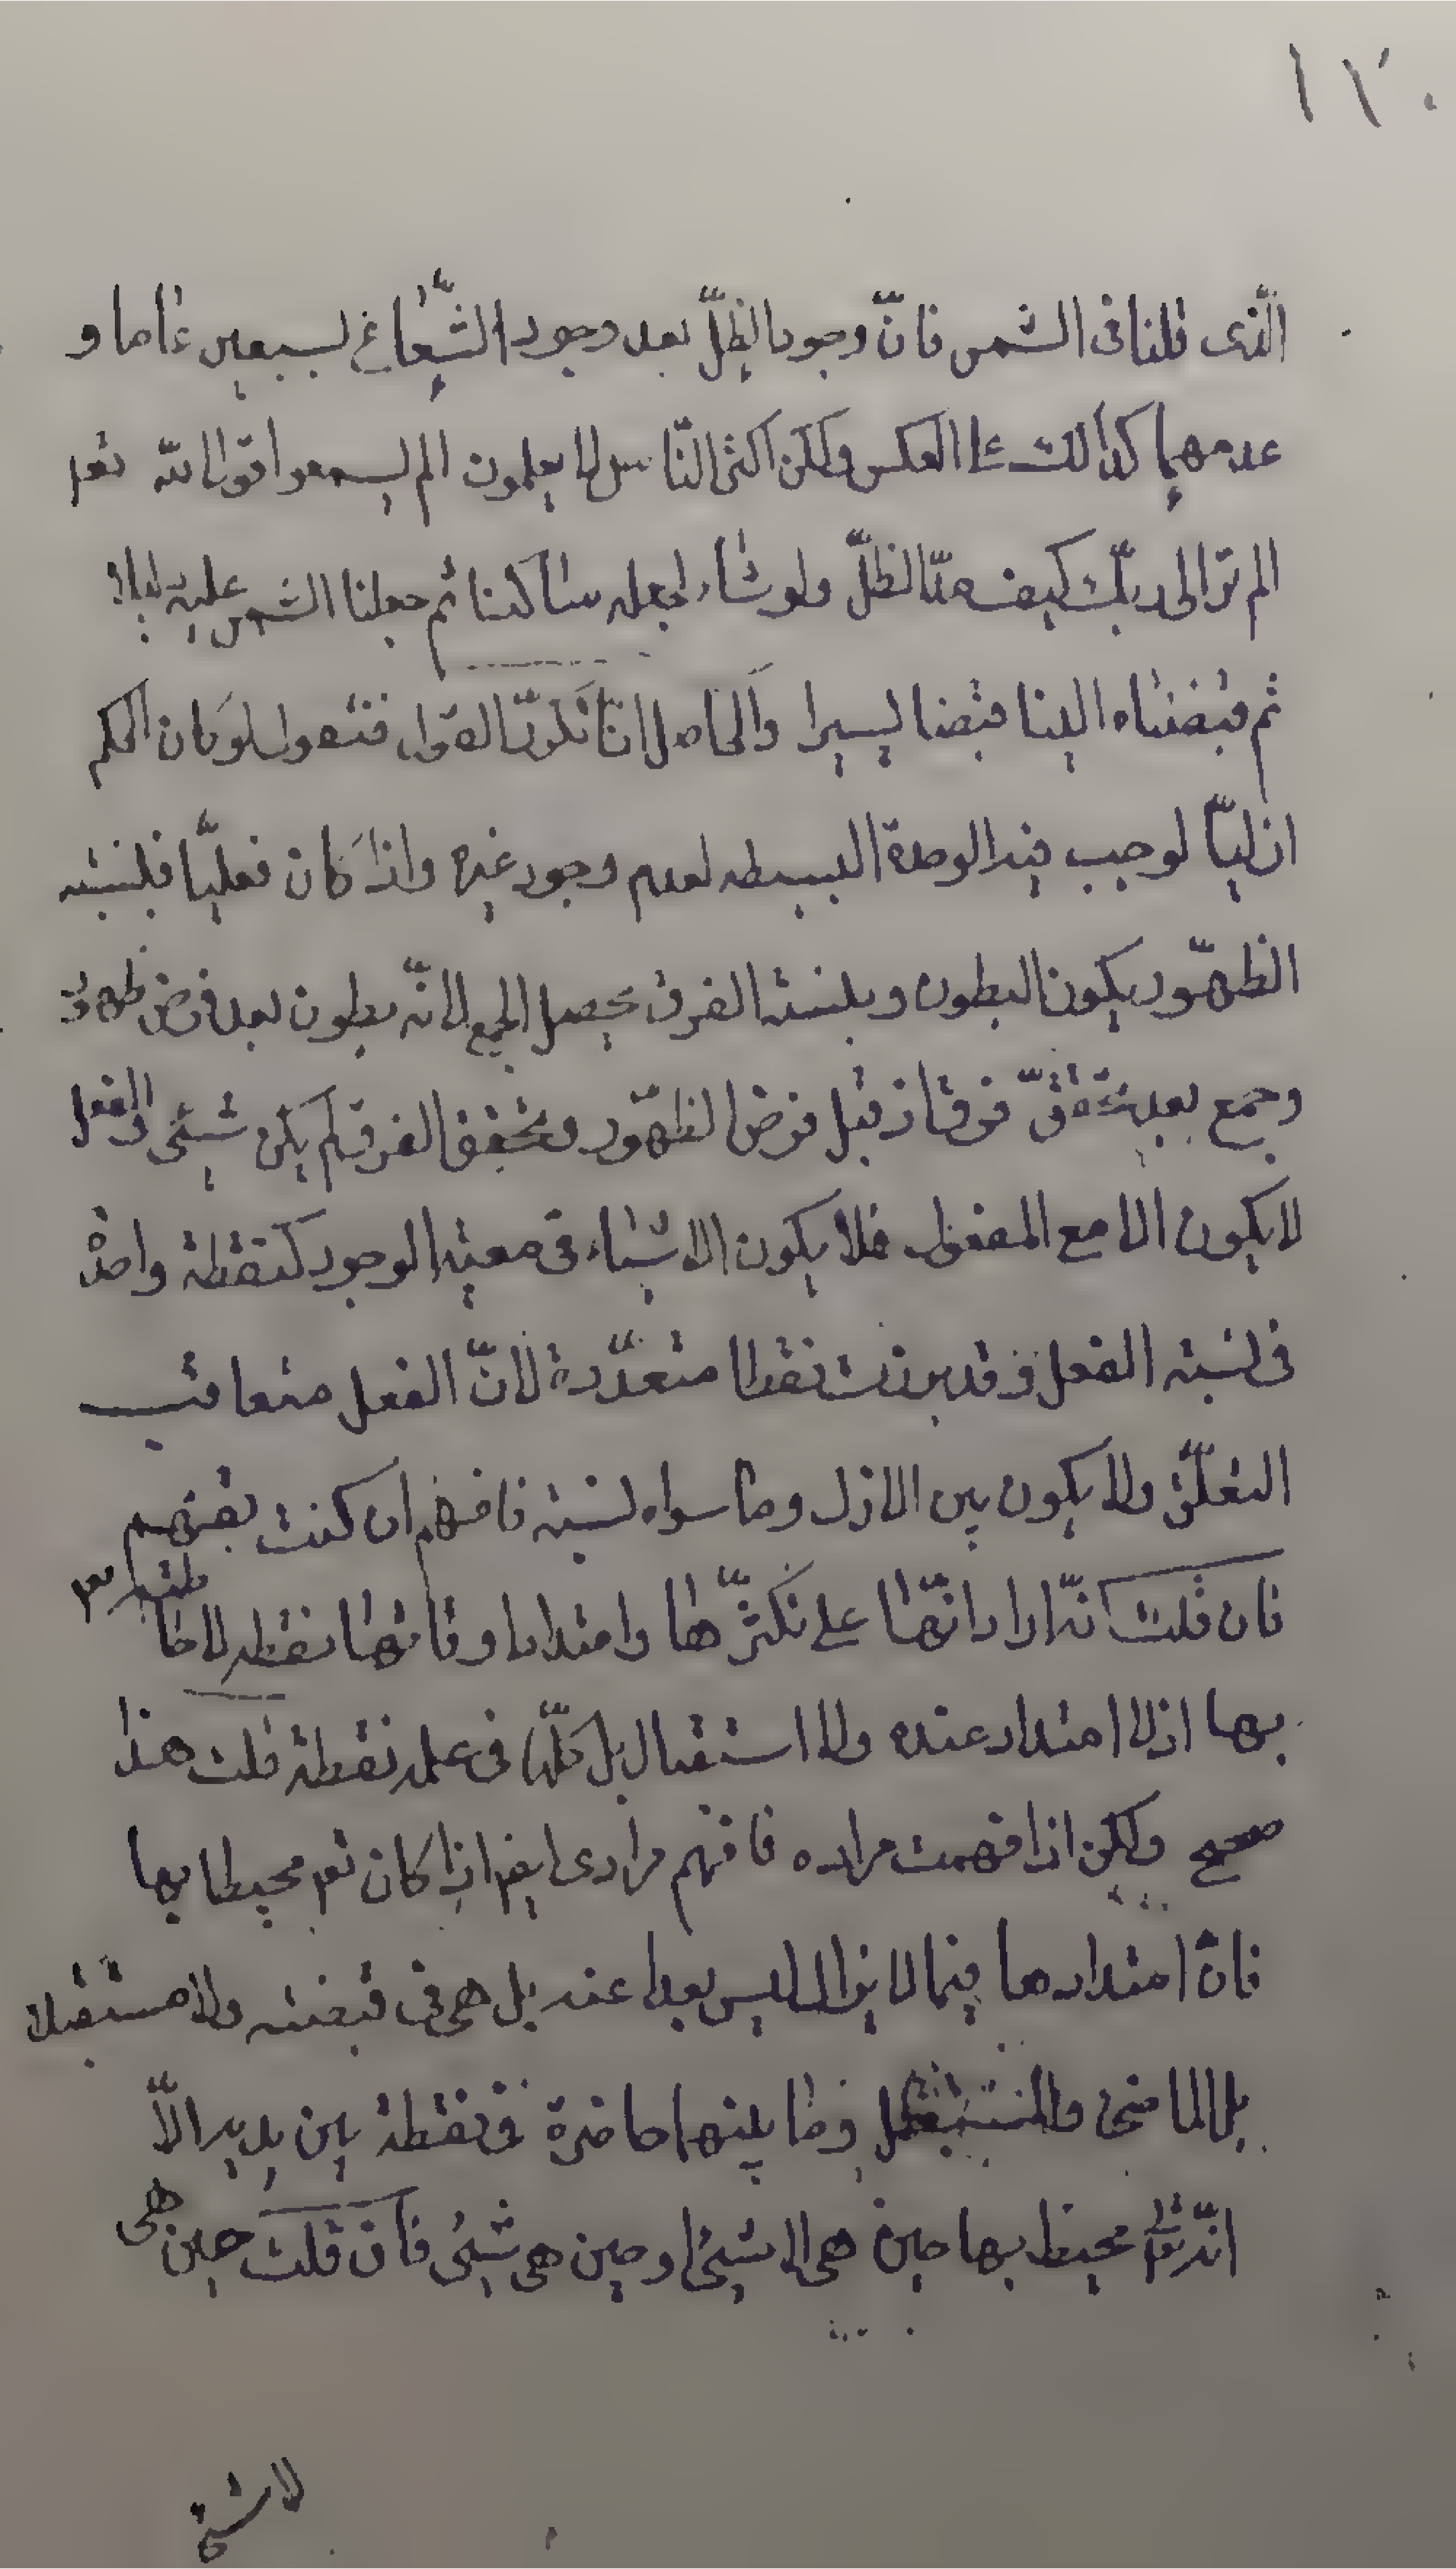 ١٢٠
الّذى قلنا فى الشمس فانّ وجود الظِلّ بعد وجود الشُّعاع بسبعين عاما و
عدمهما كذلك على العكس ولكن اكثر النّاس لا يعلمون الم يسمعوا قول الله تعم
الم تر الى ربّك كيف مدّ الظلّ ولو شاء لجعله ساكنا ثم جعلنا الشمس عليه دليلا
ثم قبضناه الينا قبضا يسيرا والحاصل انّا نكرّر القول فنقول لو كان الحكم
ازليّا لوجب فيه الوحدة البسيطه لعدم وجود غيره واذا كان فعليّا فبنسبته
الظهّور يكون البطون وبنسبته الفرق يحصل الجمع لانّه بطون بعد فرض ظهور
وجمع بعد تحقّق فرق اذ قبل فرض الظهّور وتحقق الفرق لم يكن شيئى والفعل
لا يكون الا مع المفعول فلا يكون الاشياء فى معيته الوجود كنقطة واحدة
فى نسبته الفعل وقد برزت نقطا متعدّدة لانّ الفعل متعاقب
التعلّق ولا يكون بين الازل وما سواه نسبته فافهم ان كنت تفهم
فان قلت انّه اراد انّها على تكثّرها وامتداد اوقاتها نقطه لاحاطته تعم
بها اذ لا امتداد عنده ولا استقبال بل كلّه فى علمه نقطة قلت هذا
صحيح ولكن اذا فهمت مراده فافهم مرادى ايضا اذا كان تعم محيطا بها
فانّ امتدادها فيما لا يزال ليس بعدا عنه بل هى فى قبضته ولا مستقبلا
بل الماضى والمستقبل وما بينهما حاضرة فى نقطة بين يديه الاّ
انّه تعم محيط بها حين هى لا شيئى وحين هى شيئى فان قلت حين هى
لا شئ